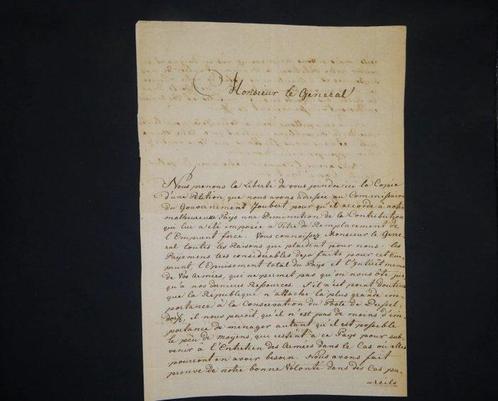 Monsieur le Général
Nous prenons la Liberté de vous joindre ici la Copie
d'une Pétition que nous avons adressée au Commissaire
du Gouvernement Joubert pour qu'il accorde à notre
malheureux Pays une Diminution de la Contribution
qui lui a été imposée à Titre de Remplacement de
l'Emprunt forcé. Vous connoissez Monsieur le Géné-
ral toutes les Raisons que plaident pour nous: les
Payemens considérables deja faits pour cet Em-
prunt, l'Epuisement total du Pays et
de Vos Armées, que ne permet pas qu'on nous ôte jus
qu'à nos dernières Ressources. S'il n'est point douteux
que la République n'attache la plus grande im-
portance à la Conservation du Poste de Dussel-
dorff, il nous paroit qu'il n'est pas de moins d'im-
portance de menager autant qu'il est possible
le peu de moyens, qui restent à ce Pays pour sub-
venir à l'Entretien des Armées dans le Cas où elles
pourront en avoir besoin. Nous avons fait
preuve de notre bonne Volonté dans des Cas pa-
reils